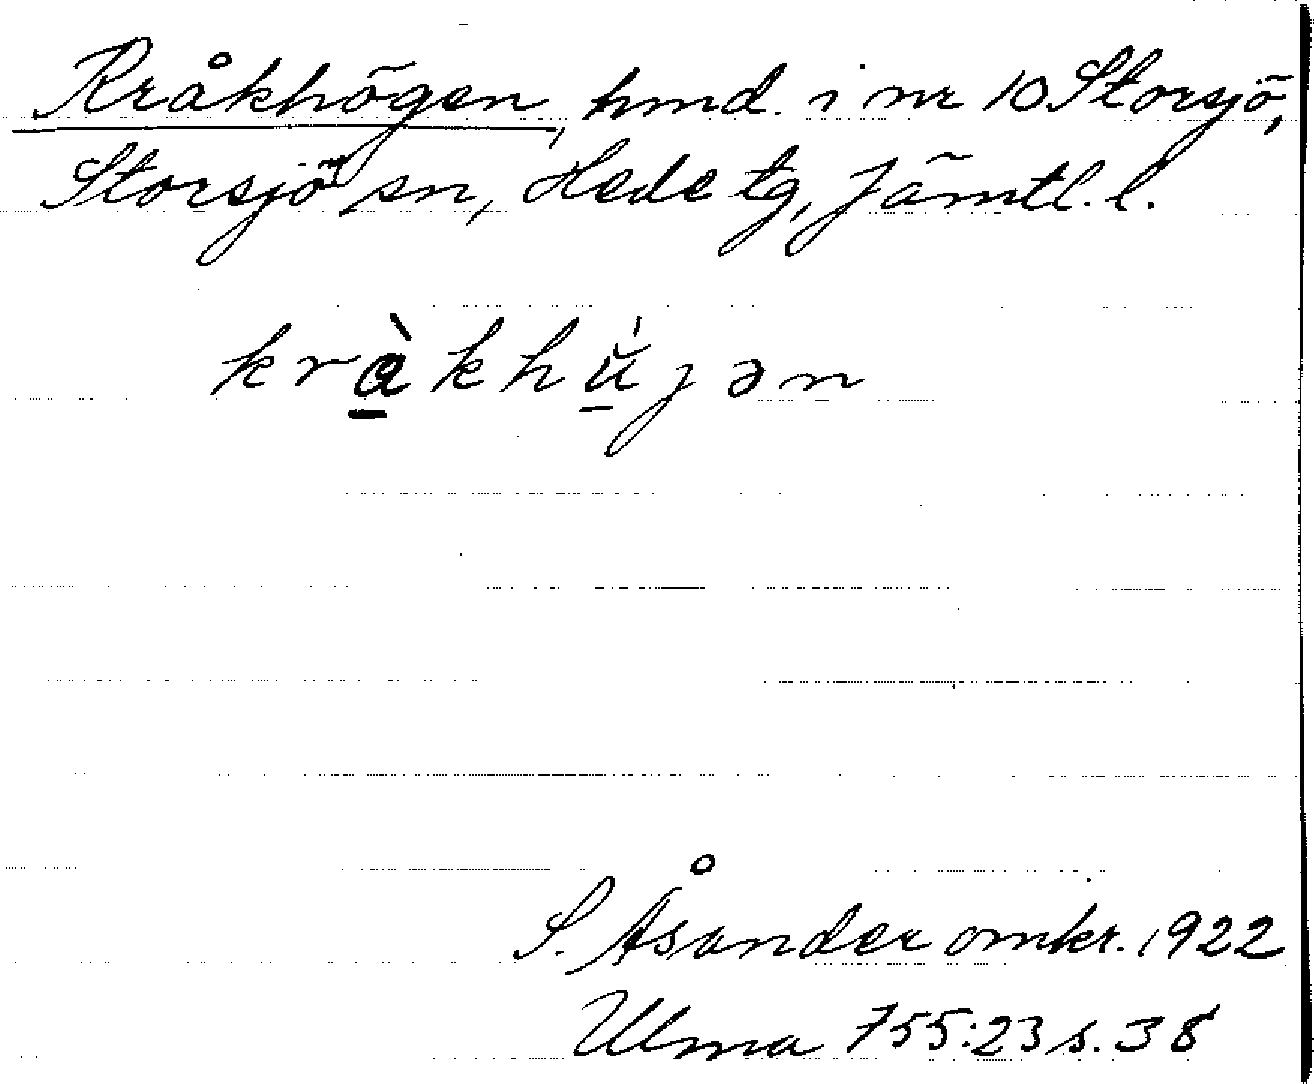 Kråkhögen, hmd. i nr 10 Storsjö,
Storsjö sn, Hede tg, Jämtl. l.
krὰ̠khu̠̇́jən
S. Åsander omkr. 1922
Ulma 755:23 s. 38